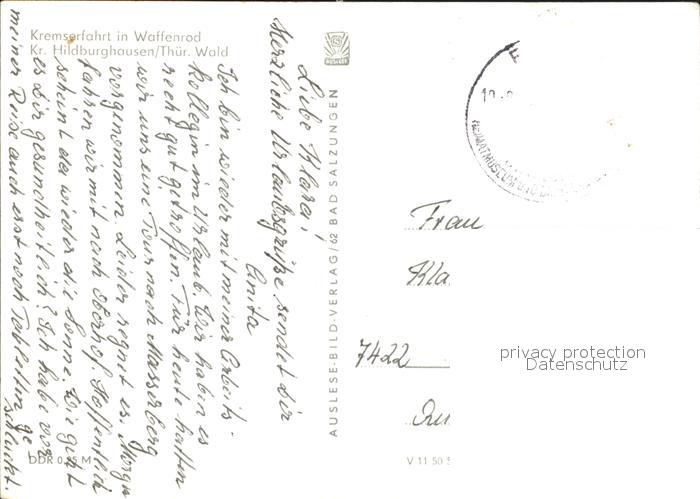 Kremserfahrt in Waffenrod
Kr. Hildburghausen/Thür. Wald
Liebe Klara!
Herzliche Urlaubsgrüße sendet dir
Anita
Ich bin wieder mit meiner Arbeits-
kollegin im Urlaub. Wir haben es
recht gut getroffen. Für heute hatten
wir uns eine Tour nach Masserberg
vorgenommen. Leider regnet es. Morgen
fahren wir mit nach Oberhof. Hoffentlich
scheint da wieder die Sonne. Wie geht
es dir gesundheitlich? Ich habe vor
meiner Reise auch erst noch Tabletten ge
schluckt.
DDR 0,25 M
AUSLESE
AUSLESE-BILD-VERLAG/62 BAD SALZUNGEN
HEIMATMUSEUM
Frau
Kla
7422
privacy protection
Datenschutz
V 11 50 5